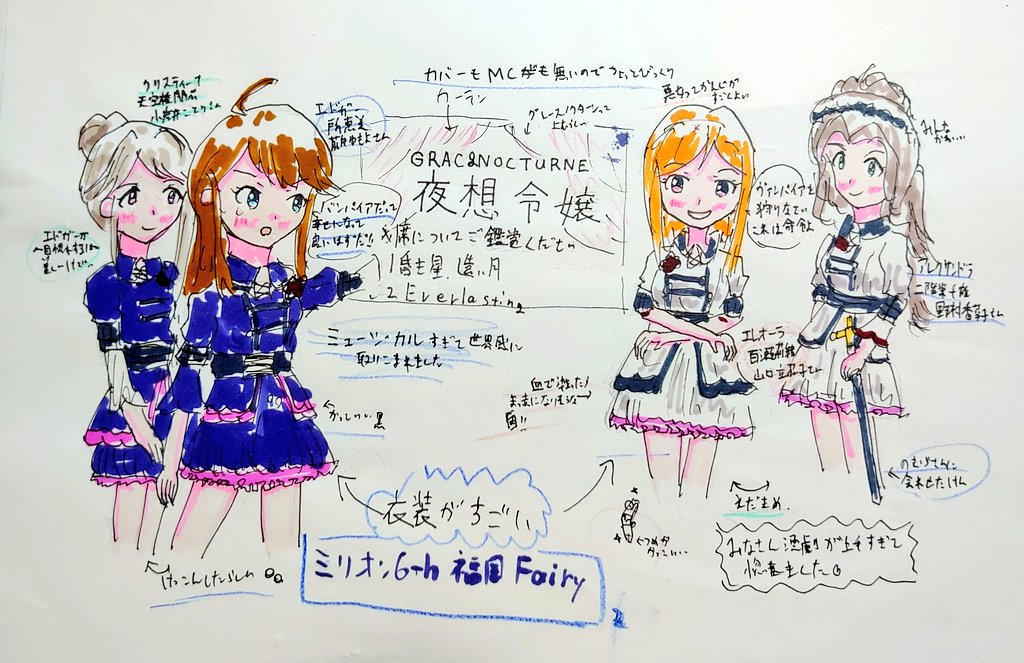 カバーもMCがも無いのでちょっとびっくり
クリスティーナ
天空橋朋花
小岩井ことりさん
エドガー
所恵美
藤井ゆきよさん
カーテン
グレースノクターンって
よむらしい
悪女ってかんじが
すごくよい
みんな
かわいい…
GRAC&NOCTURNE
夜想令嬢
お席についてご鑑賞ください
1昏き星、遠い月
2 Everlasting
バンパイアだって
幸せになって
良いはずだ!!
ヴァンパイアを
狩りなさい
これは命令よ
エドガーが
ミュージカルすぎて世界感に
取りこまれました
アレクサンドラ
二階堂千鶴
野村香菜子さん
エレオーラ
百瀬莉緒
山口立花子さん
かっこいい黒
血で濡った
衣装がすごい
ミリオン6th 福岡 Fairy
けっこんしたらしい
えだまめ
のむらさんに
みなさん演劇が上手すぎて
惚れました